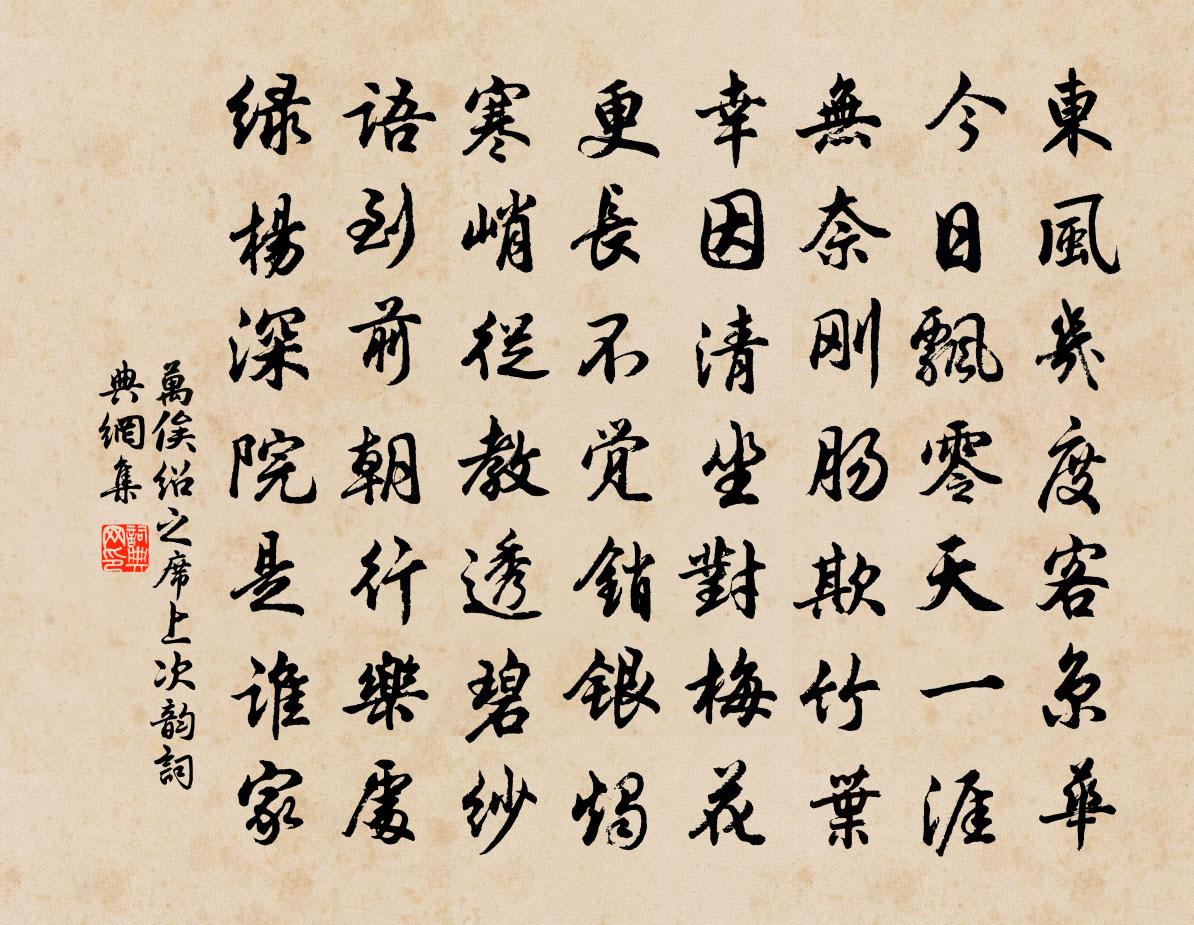 東風幾度客京華
今日飄零天一涯
無奈刚肠欺竹葉
幸因清坐對梅花
更長不觉銷銀燭
寒峭從教透碧紗
語到前朝行樂處
绿楊深院是誰家
萬俟绍之席上次韵詞
典網集
詞典网印